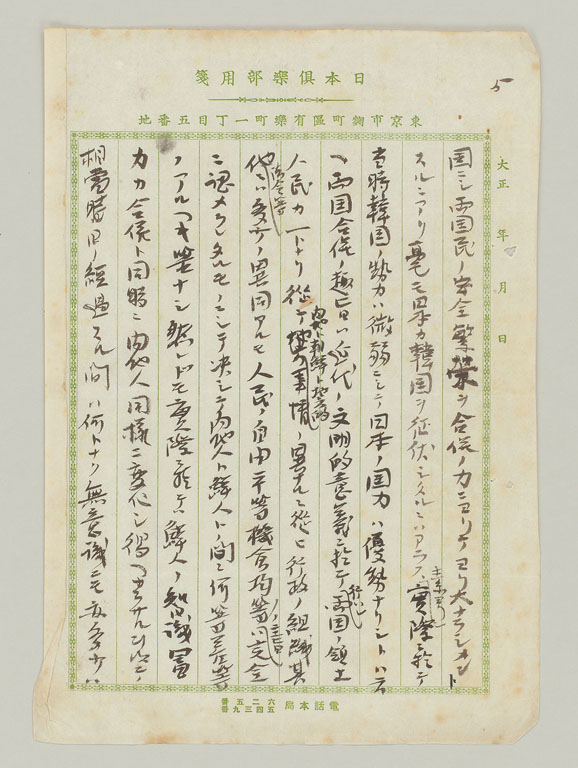 日本倶樂部用箋
東京市麹町區有樂町一丁目五番地
5
大正 年 月 日
国ニシ両国民ノ安全繁栄ヲ合併ノ力ニヨリテヨリ大ナラシメント
スルニアリ毫モ日本カ韓国ヲ征伏シタルニハアラス実際ニ於テ
当時韓国ノ勢力ハ微弱ニシテ日本ノ国力ハ優勢ナリシトハ云
ヘ両国合併ノ趣旨ハ近代ノ文明的意義ニ於テ両国ノ領土
人民カ一トナリ従テ内地ト朝鮮ト地方的事情ノ異ナルニ従ヒ行政ノ組織其
他ニハ多少ノ異同アルモ人民ノ自由平等機会均等ハ完全
ニ認メラレタルモノニシテ決シテ内地人ト鮮人トノ間ニ何等
ノアルヘキ筈ナシ然レトモ実際ニ於テハ鮮人ノ智識富
力カ合併ト同時ニ内地人同様ニ変化シ得
相当時日ノ経過スル間ハ何トナク無意識ニモ
電話本局
六二五番
五四三九番